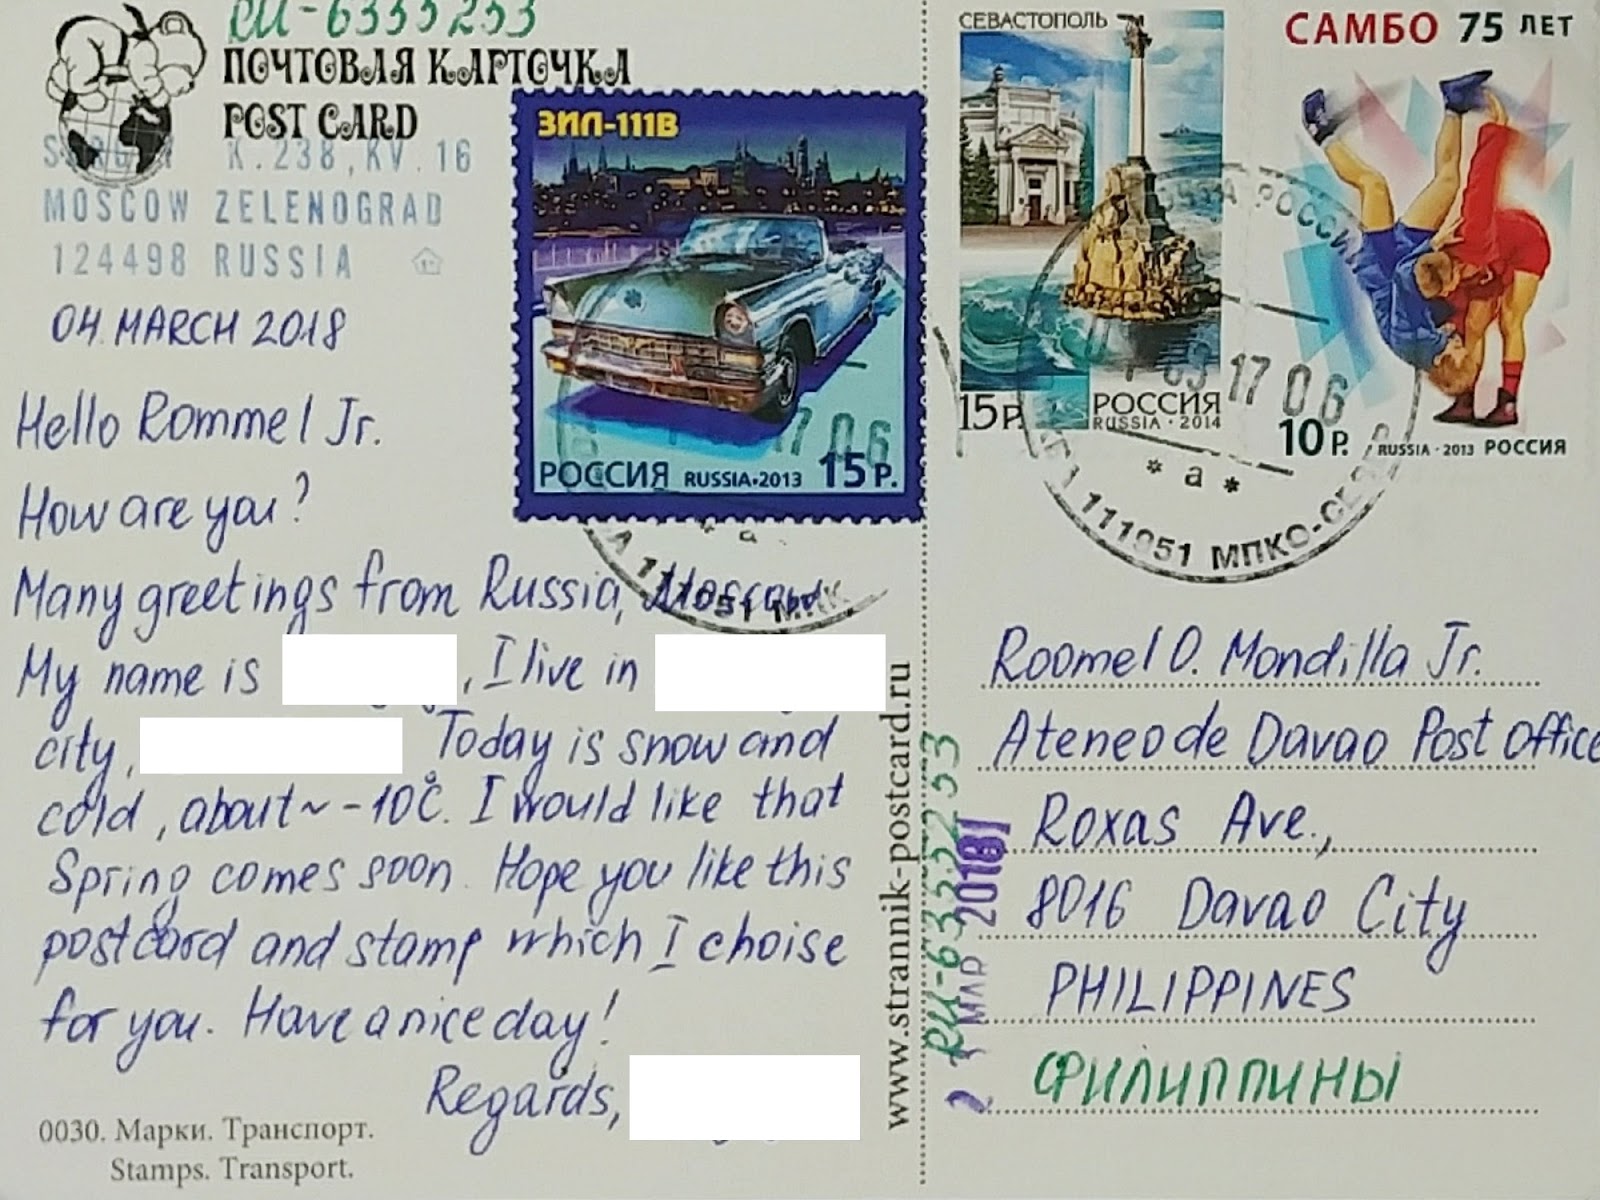 RU-6335253
ПОЧТОВАЯ КАРТОЧКА
POST CARD
K.238, KV.16
MOSCOW ZELENOGRAD
124498 RUSSIA
04. MARCH 2018
Hello Rommel Jr.
How are you?
Many greetings from Russia, Moscow
My name is , I live in
city, Today is snow and
cold, about ~ -10°C. I would like that
Spring comes soon. Hope you like this
postcard and stamp which I choise
for you. Have a nice day!
Regards,
0030. Марки. Транспорт.
Stamps. Transport.
ЗИЛ-111В
РОССИЯ RUSSIA•2013 15 Р.
17 06
111051
www.strannik-postcard.ru
СЕВАСТОПОЛЬ
15 Р. РОССИЯ
RUSSIA • 2014
САМБО 75 ЛЕТ
10 Р. RUSSIA • 2013 РОССИЯ
РОССИИ
03 17 06
* а *
111051 МПКО
МАР 2018
Roomel O. Mondilla Jr.
Ateneo de Davao Post Office
Roxas Ave.,
8016 Davao City
PHILIPPINES
ФИЛИППИНЫ